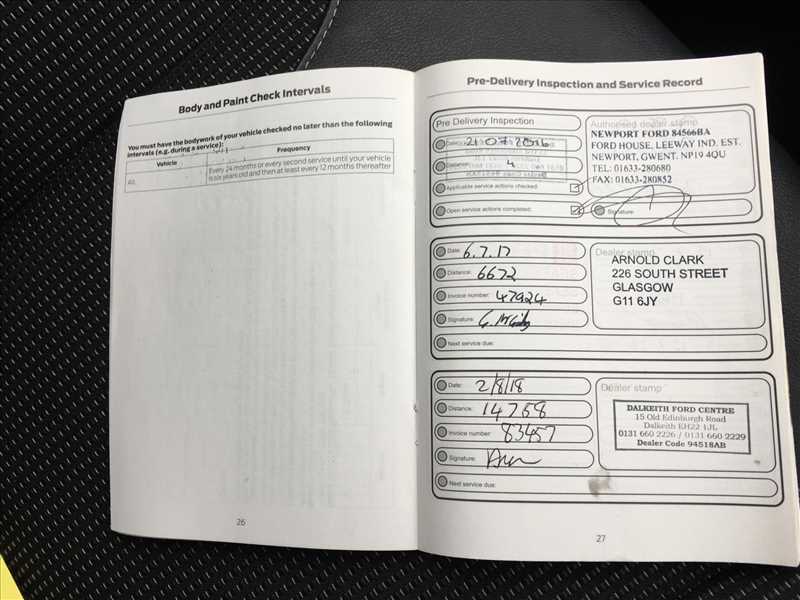 Body and Paint Check Intervals
You must have the bodywork of your vehicle checked no later than the following
intervals (e.g. during a service):
Vehicle Frequency
All. Every 24 months or every second service until your vehicle
is six years old and then at least every 12 months thereafter
26
Pre-Delivery Inspection and Service Record
Pre Delivery Inspection
21 07 2016
Distance: 4
Applicable service actions checked:
Open service actions completed:
Authorised dealer stamp
NEWPORT FORD 84566BA
FORD HOUSE, LEEWAY IND. EST.
NEWPORT, GWENT. NP19 4QU
TEL: 01633-280680
FAX: 01633-280852
Signature
Date: 6.7.17
Distance: 6672
Invoice number: 47924
Signature:
Next service due:
Dealer stamp
ARNOLD CLARK
226 SOUTH STREET
GLASGOW
G11 6JY
Date: 2/8/18
Distance: 14768
Invoice number: 83457
Signature:
Next service due:
Dealer stamp
DALKEITH FORD CENTRE
15 Old Edinburgh Road
Dalkeith EH22 1JL
0131 660 2226 / 0131 660 2229
Dealer Code 94518AB
27